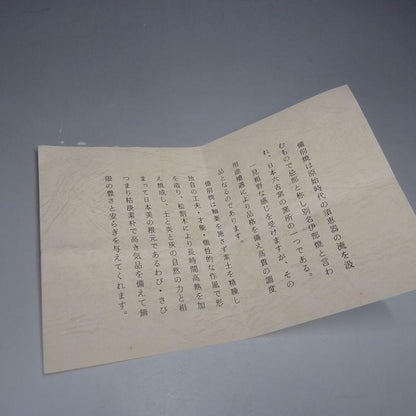 備前焼は原始時代の須恵器の流を汲
むもので忌部と称し別名伊部焼と言わ
れ、日本六古窯の窯所の一つである。
一見粗野な感じを受けますが、その
用途嗜器により品格を備え高貴の調度
品となるのであります。
備前焼は釉薬を施さず素土を精練し
独自の工夫・才能・個性的な作風で形
を造り、松割木により長時間高熱を加
え焼成し、土と炎と灰の自然の力と相
まって日本美の根元であるわび・さび
つまり枯淡素朴で高き気品を備えて無
限の豊さと安らぎを与えてくれます。